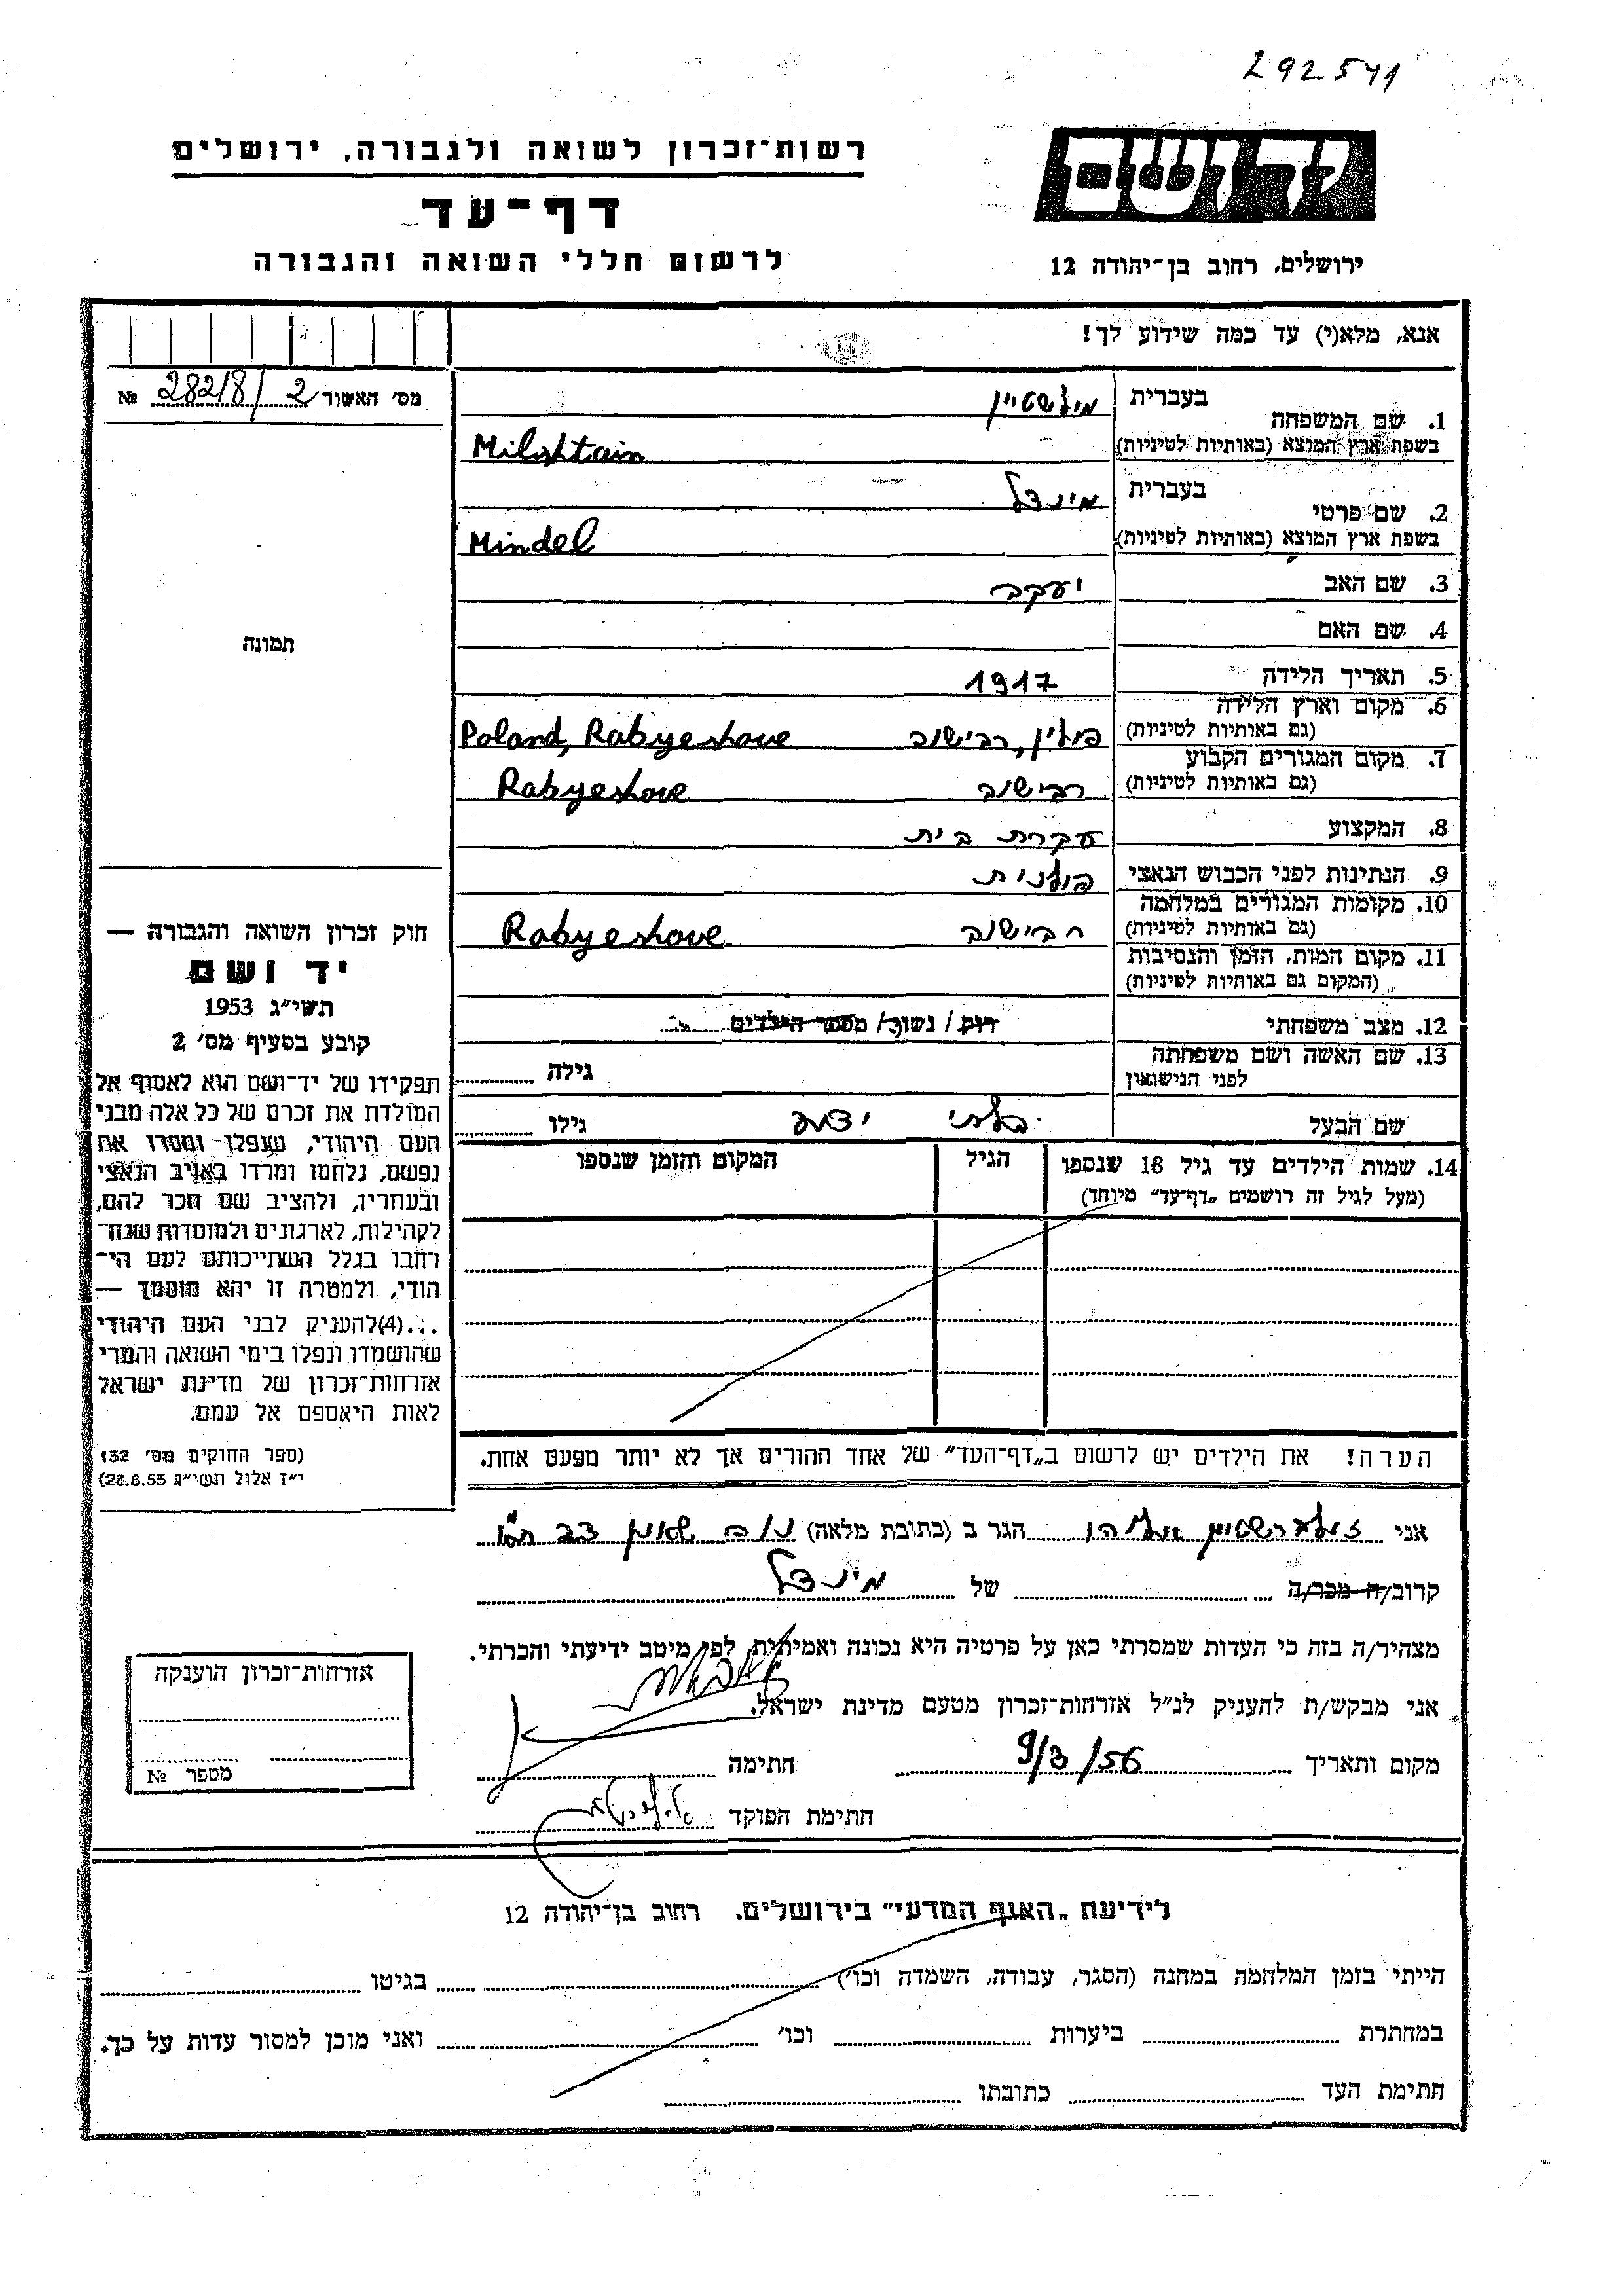 292541
יד ושם
רשות־זכרון לשואה ולגבורה, ירושלים
דף־עד
לרשום חללי השואה והגבורה
ירושלים, רחוב בן־יהודה 12
אנא, מלא(י) עד כמה שידוע לך!
מס׳ האשור 28218/2 №
1. שם המשפחה בעברית מילשטיין
בשפת ארץ המוצא (באותיות לטיניות) Milshtain
2. שם פרטי בעברית מינדל
בשפת ארץ המוצא (באותיות לטיניות) Mindel
3. שם האב יעקב
4. שם האם
תמונה
5. תאריך הלידה 1917
6. מקום וארץ הלידה
(גם באותיות לטיניות) פולין, רבישוב Poland, Rabyeshove
7. מקום המגורים הקבוע
(גם באותיות לטיניות) רבישוב Rabyeshove
8. המקצוע עקרת בית
9. הנתינות לפני הכבוש הנאצי פולנית
10. מקומות המגורים במלחמה
(גם באותיות לטיניות) רבישוב Rabyeshove
11. מקום המות, הזמן והנסיבות
(המקום גם באותיות לטיניות)
12. מצב משפחתי רוק / נשוי / מספר הילדים
13. שם האשה ושם משפחתה
לפני הנישואין גילה
שם הבעל בלתי ידוע גילו
14. שמות הילדים עד גיל 18 שנספו הגיל המקום והזמן שנספו
(מעל לגיל זה רושמים „דף־עד” מיוחד)
הערה! את הילדים יש לרשום ב„דף־העד” של אחד ההורים אך לא יותר מפעם אחת.
חוק זכרון השואה והגבורה —
יד ושם
תשי״ג 1953
קובע בסעיף מס׳ 2
תפקידו של יד־ושם הוא לאסוף אל
המולדת את זכרם של כל אלה מבני
העם היהודי, שנפלו ומסרו את
נפשם, נלחמו ומרדו באויב הנאצי
ובעוזריו, ולהציב שם וזכר להם,
לקהילות, לארגונים ולמוסדות שנח־
רבו בגלל השתייכותם לעם הי־
הודי, ולמטרה זו יהא מוסמך —
...(4)להעניק לבני העם היהודי
שהושמדו ונפלו בימי השואה והמרי
אזרחות־זכרון של מדינת ישראל
לאות היאספם אל עמם.
(ספר החוקים מס׳ 132
י״ז אלול תשי״ג 28.8.53)
אני זילברשטיין אליהו הגר ב (כתובת מלאה)
קרוב/ה מכר/ה של מינדל
מצהיר/ה בזה כי העדות שמסרתי כאן על פרטיה היא נכונה ואמיתית, לפי מיטב ידיעתי והכרתי.
אני מבקש/ת להעניק לנ״ל אזרחות־זכרון מטעם מדינת ישראל.
מקום ותאריך 9/3/56 חתימה
חתימת הפוקד
אזרחות־זכרון הוענקה
מספר №
לידיעת „האגף המדעי” בירושלים. רחוב בן־יהודה 12
הייתי בזמן המלחמה במחנה (הסגר, עבודה, השמדה וכו׳) בגיטו
במחתרת ביערות וכו׳ ואני מוכן למסור עדות על כך.
חתימת העד כתובתו